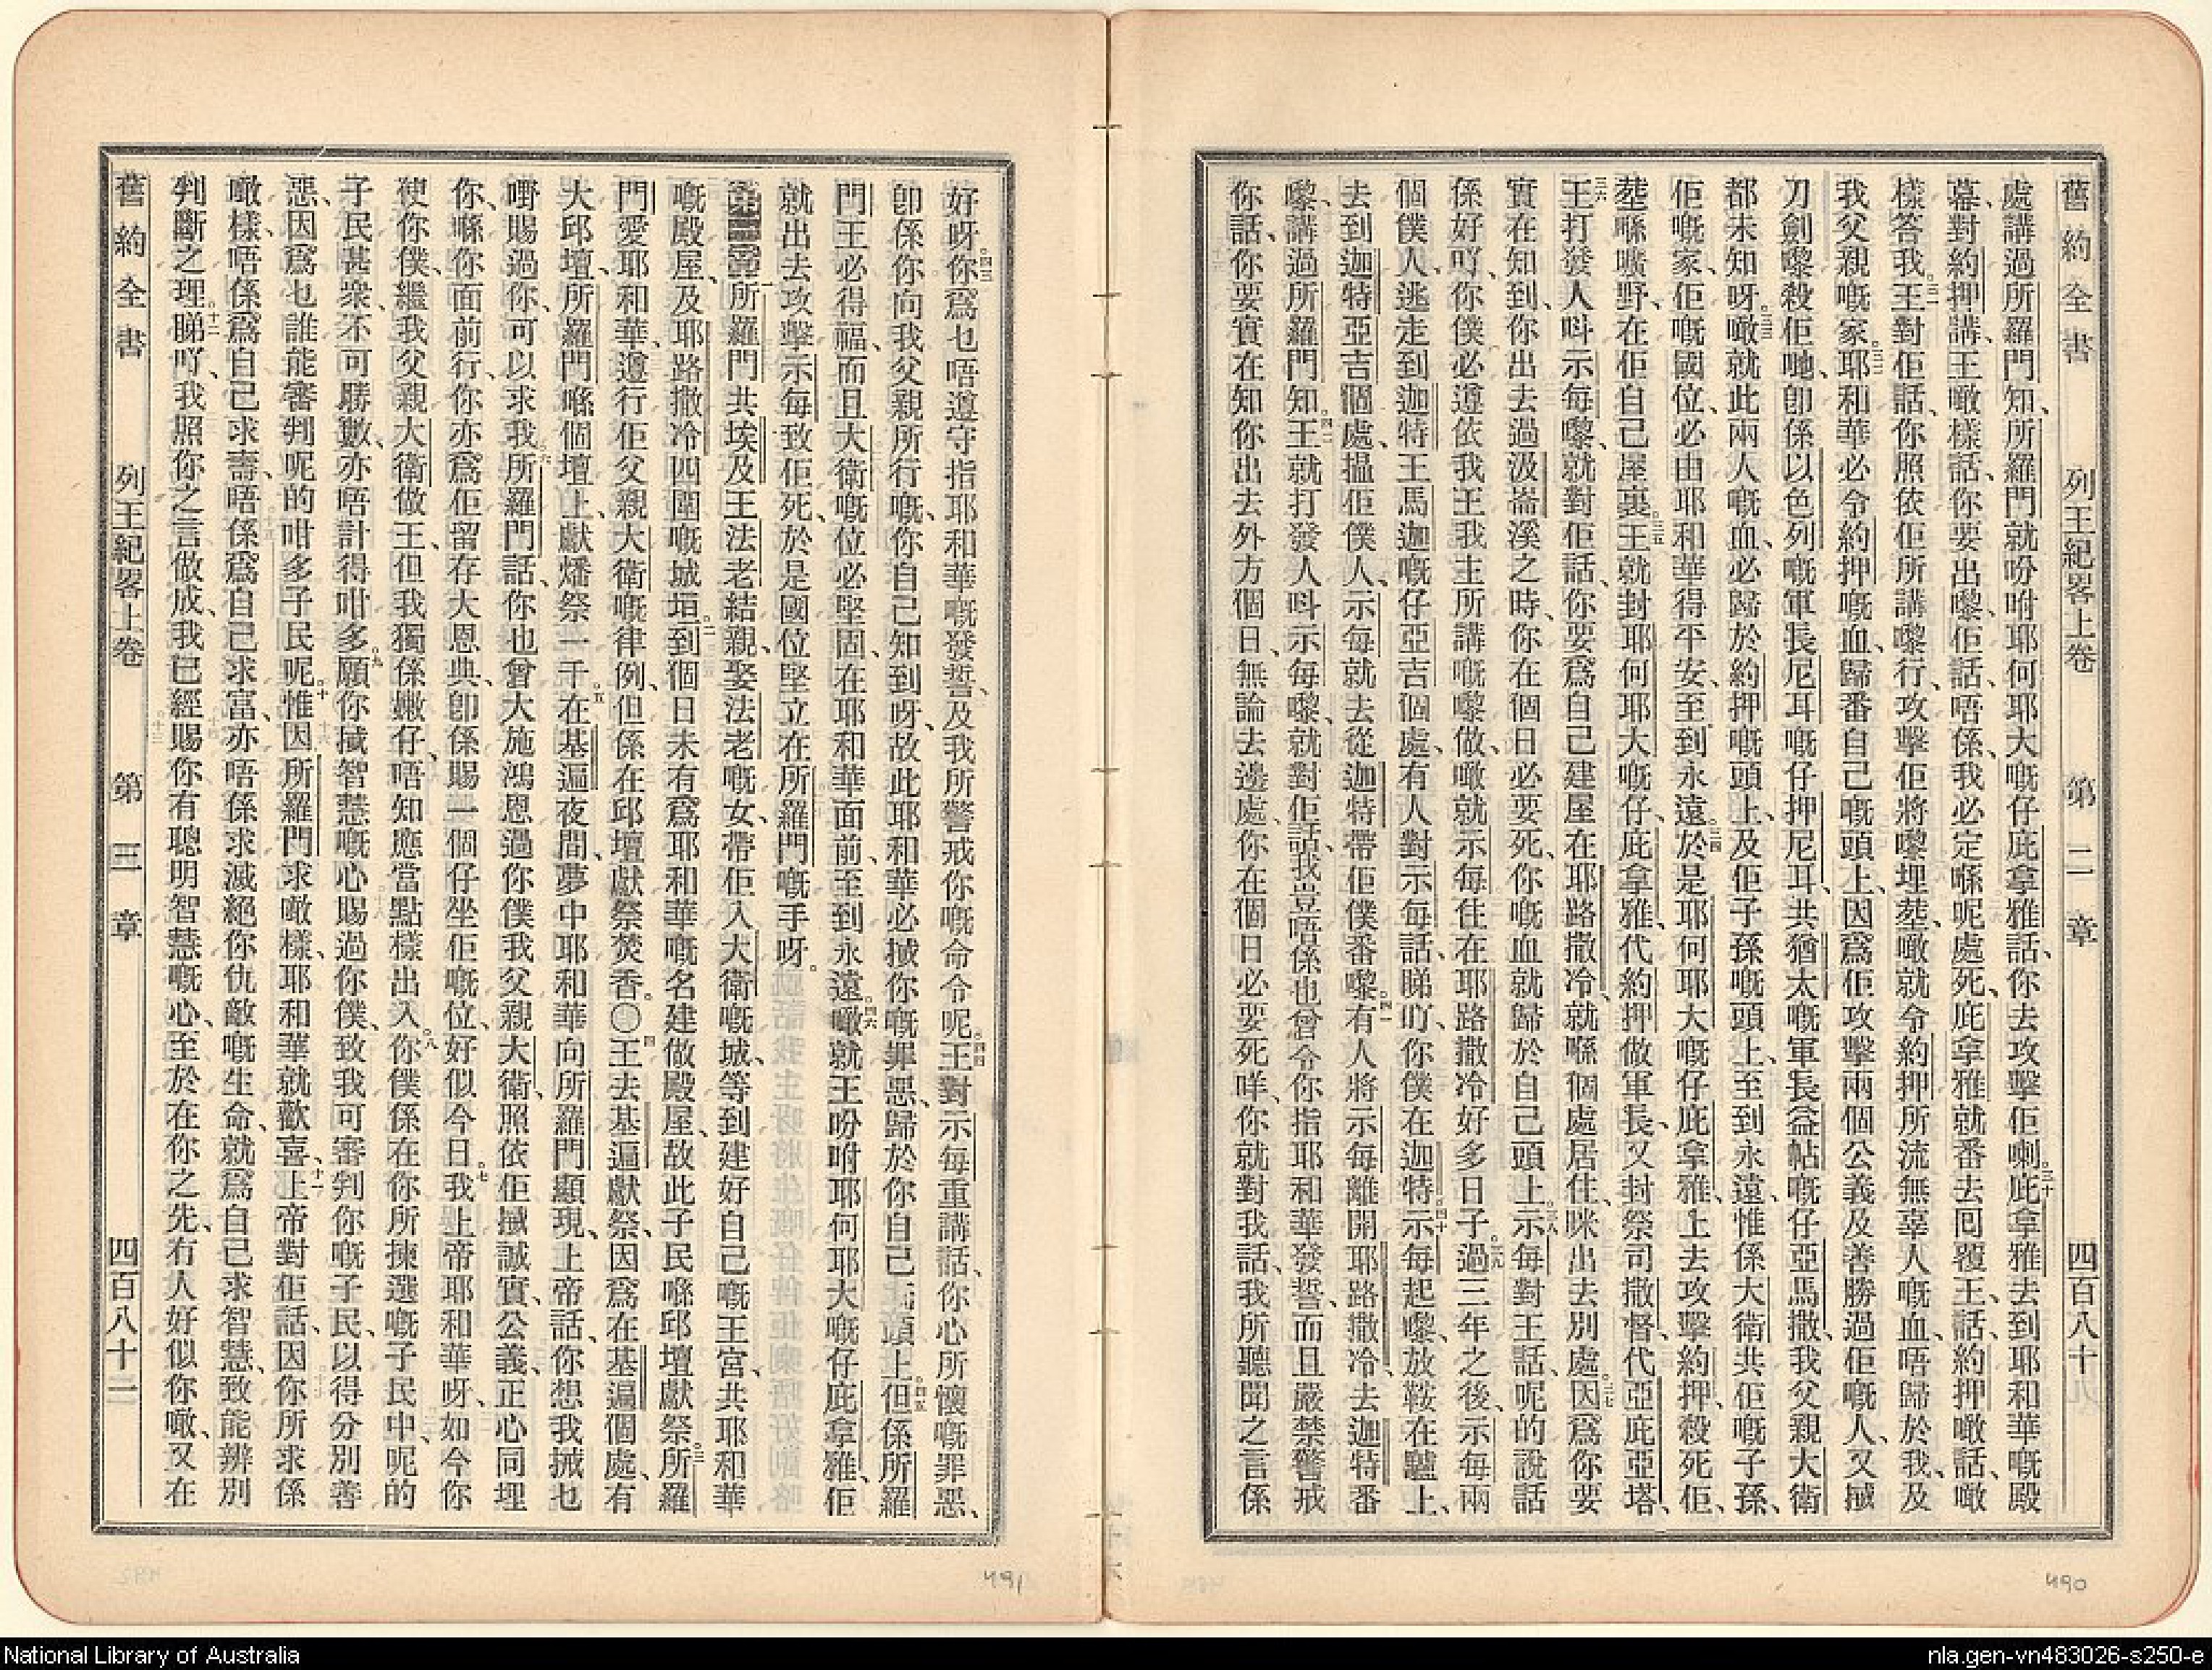 舊約全書 列王紀畧上卷 第二章 四百八十
處講過所羅門知、所羅門就吩咐耶何耶大嘅仔庇拿雅話、你去攻擊佢喇。三十庇拿雅去到耶和華嘅殿
幕、對約押講、王噉樣話、你要出嚟、佢話、唔係、我必定喺呢處死、庇拿雅就番去回覆王、話、約押噉話、噉
樣答我。三一王對佢話、你照依佢所講嚟行、攻擊佢將嚟埋葬、噉就令約押所流無辜人嘅血、唔歸於我、及
我父親嘅家。三二耶和華必令約押嘅血、歸番自己嘅頭上、因爲佢攻擊兩個公義及善勝過佢嘅人、又摵
刀劍嚟殺佢哋、卽係以色列嘅軍長尼耳嘅仔押尼耳、共猶太嘅軍長益帖嘅仔亞馬撒、我父親大衛
都未知呀。三三噉就此兩人嘅血、必歸於約押嘅頭上、及佢子孫嘅頭上、至到永遠、惟係大衛共佢嘅子孫、
佢嘅家、佢嘅國位、必由耶和華得平安、至到永遠。三四於是耶何耶大嘅仔庇拿雅、上去攻擊約押、殺死佢、
葬喺曠野、在佢自己屋裏。三五王就封耶何耶大嘅仔、庇拿雅、代約押做軍長、又封祭司撒督、代亞庇亞塔、
三六王打發人呌示每嚟、就對佢話、你要爲自己建屋在耶路撒冷、就喺個處居住、咪出去別處。三七因爲你要
實在知到、你出去過汲崙溪之時、你在個日必要死、你嘅血就歸於自己頭上。三八示每對王話、呢的說話
係好吖、你僕必遵依我王我主所講嘅嚟做、噉就示每住在耶路撒冷好多日子。三九過三年之後、示每兩
個僕人、逃走到迦特王馬迦嘅仔亞吉個處、有人對示每話、睇吖、你僕在迦特。四十示每起嚟、放鞍在驢上、
去到迦特亞吉個處、搵佢僕人、示每就去從迦特帶佢僕番嚟。四一有人將示每離開耶路撒冷、去迦特番
嚟、講過所羅門知。四二王就打發人呌示每嚟、就對佢話、我豈唔係也曾令你指耶和華發誓、而且嚴禁警戒
你話、你要實在知你出去外方個日、無論去邊處、你在個日必要死咩、你就對我話、我所聽聞之言係
490
好呀。四三你爲乜唔遵守指耶和華嘅發誓、及我所警戒你嘅命令呢。四四王對示每重講話、你心所懷嘅罪惡、
卽係你向我父親所行嘅、你自己知到呀、故此耶和華必摵你嘅罪惡、歸於你自己頭上。四五但係所羅
門王必得福、而且大衛嘅位必堅固、在耶和華面前、至到永遠。四六噉就王吩咐耶何耶大嘅仔庇拿雅、佢
就出去攻擊示每、致佢死、於是國位堅立在所羅門嘅手呀。
第三章 一所羅門共埃及王法老結親、娶法老嘅女、帶佢入大衛嘅城、等到建好自己嘅王宮、共耶和華
嘅殿屋、及耶路撒冷四圍嘅城垣。二到個日未有爲耶和華嘅名建做殿屋、故此子民喺邱壇獻祭。三所羅
門愛耶和華、遵行佢父親大衛嘅律例、但係在邱壇獻祭焚香。〇四王去基遍獻祭、因爲在基遍個處、有
大邱壇、所羅門喺個壇上、獻燔祭一千。五在基遍夜間、夢中耶和華向所羅門顯現、上帝話、你想我摵乜
嘢賜過你、可以求我。六所羅門話、你也曾大施鴻恩過你僕我父親大衛、照依佢摵誠實公義、正心同埋
你、喺你面前行、你亦爲佢留存大恩典、卽係賜一個仔坐佢嘅位、好似今日。七我上帝耶和華呀、如今你
使你僕、繼我父親大衛做王、但我獨係嫩仔、唔知應當點樣出入。八你僕係在你所揀選嘅子民中、呢的
子民甚衆、不可勝數、亦唔計得咁多。九願你摵智慧嘅心賜過你僕、致我可審判你嘅子民、以得分別善
惡、因爲乜誰能審判呢的咁多子民呢。十惟因所羅門求噉樣、耶和華就歡喜、十一上帝對佢話、因你所求係
噉樣、唔係爲自己求壽、唔係爲自己求富、亦唔係求滅絕你仇敵嘅生命、就爲自己求智慧、致能辨別
判斷之理。十二睇吖、我照你之言做成、我已經賜你有聰明智慧嘅心、至於在你之先、有人好似你噉、又在
舊約全書 列王紀畧上卷 第三章 四百八十一
491
National Library of Australia
nla.gen-vn483026-s250-e